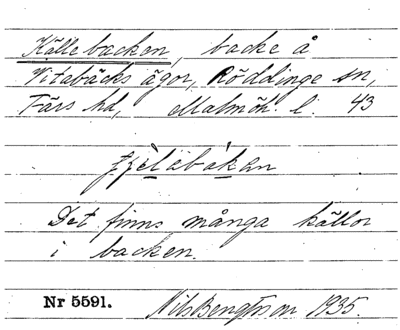 Källebacken, backe å
Vitabäcks ägor, Röddinge sn,
Färs hd, Malmöh. l. 43
Det finns många källor
i backen.
Nr 5591. Nils Bengtsson 1935.